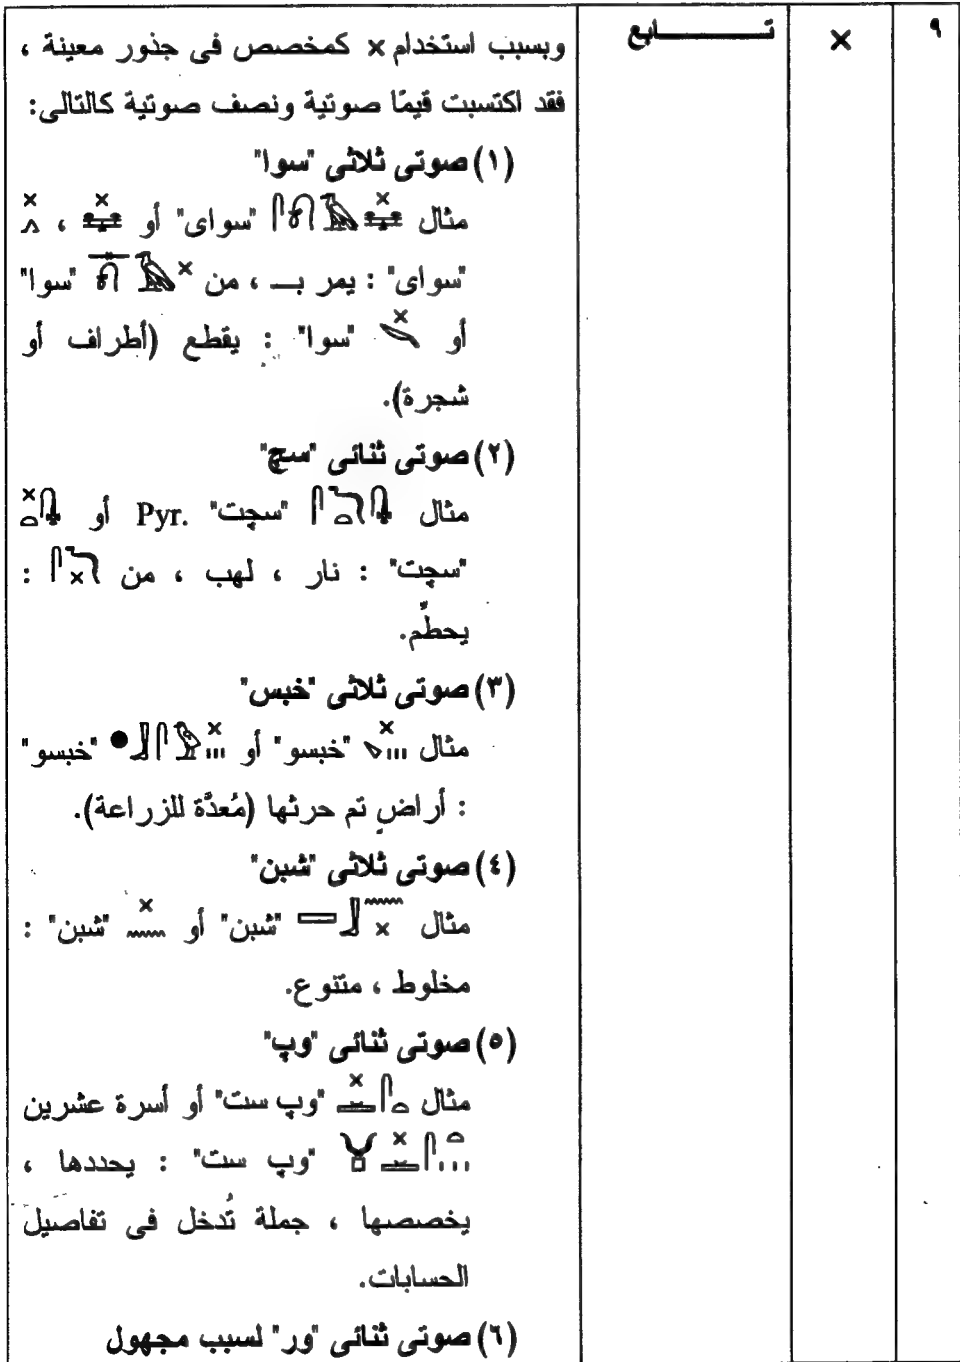 ٩ × تـــــابع وبسبب استخدام × كمخصص فى جذور معينة ،
فقد اكتسبت قيمًا صوتية ونصف صوتية كالتالى:
(١) صوتى ثلاثى "سوا"
مثال "سواى" أو ،
"سواى" : يمر بـــ ، من "سوا"
أو "سوا" : يقطع (أطراف أو
شجرة).
(٢) صوتى ثنائى "سچ"
مثال "سچت" Pyr. أو
"سچت" : نار ، لهب ، من :
يحطِّم.
(٣) صوتى ثلاثى "خبس"
مثال "خبسو" أو "خبسو"
: أراضٍ تم حرثها (مُعدَّة للزراعة).
(٤) صوتى ثلاثى "شبن"
مثال "شبن" أو "شبن" :
مخلوط ، متنوع.
(٥) صوتى ثنائى "وپ"
مثال "وپ ست" أو أسرة عشرين
"وپ ست" : يحددها ،
يخصصها ، جملة تُدخل فى تفاصيل
الحسابات.
(٦) صوتى ثنائى "ور" لسبب مجهول